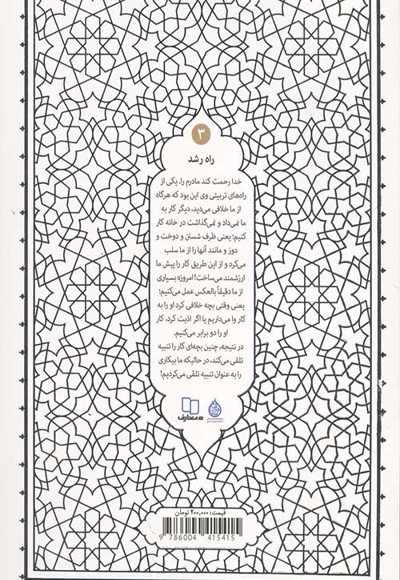 ۳
راه رشد
خدا رحمت کند مادرم را، یکی از
راه‌های تربیتی وی این بود که هرگاه
از ما خلافی می‌دید، دیگر کار به
ما نمی‌داد و نمی‌گذاشت در خانه کار
کنیم؛ یعنی ظرف شستن و دوخت و
دوز و مانند آنها را از ما سلب
می‌کرد و از این طریق کار را پیش ما
ارزشمند می‌ساخت! امروزه بسیاری
از ما دقیقاً بالعکس عمل می‌کنیم؛
یعنی وقتی بچه خلافی کرد او را به
کار وا می‌داریم یا اگر اذیت کرد، کار
او را دو برابر می‌کنیم.
در نتیجه، چنین بچه‌ای کار را تنبیه
تلقی می‌کند، در حالیکه ما بیکاری
را به عنوان تنبیه تلقی می‌کردیم!
معارف
قیمت: ۲۰۰,۰۰۰ تومان
9 786004 415415